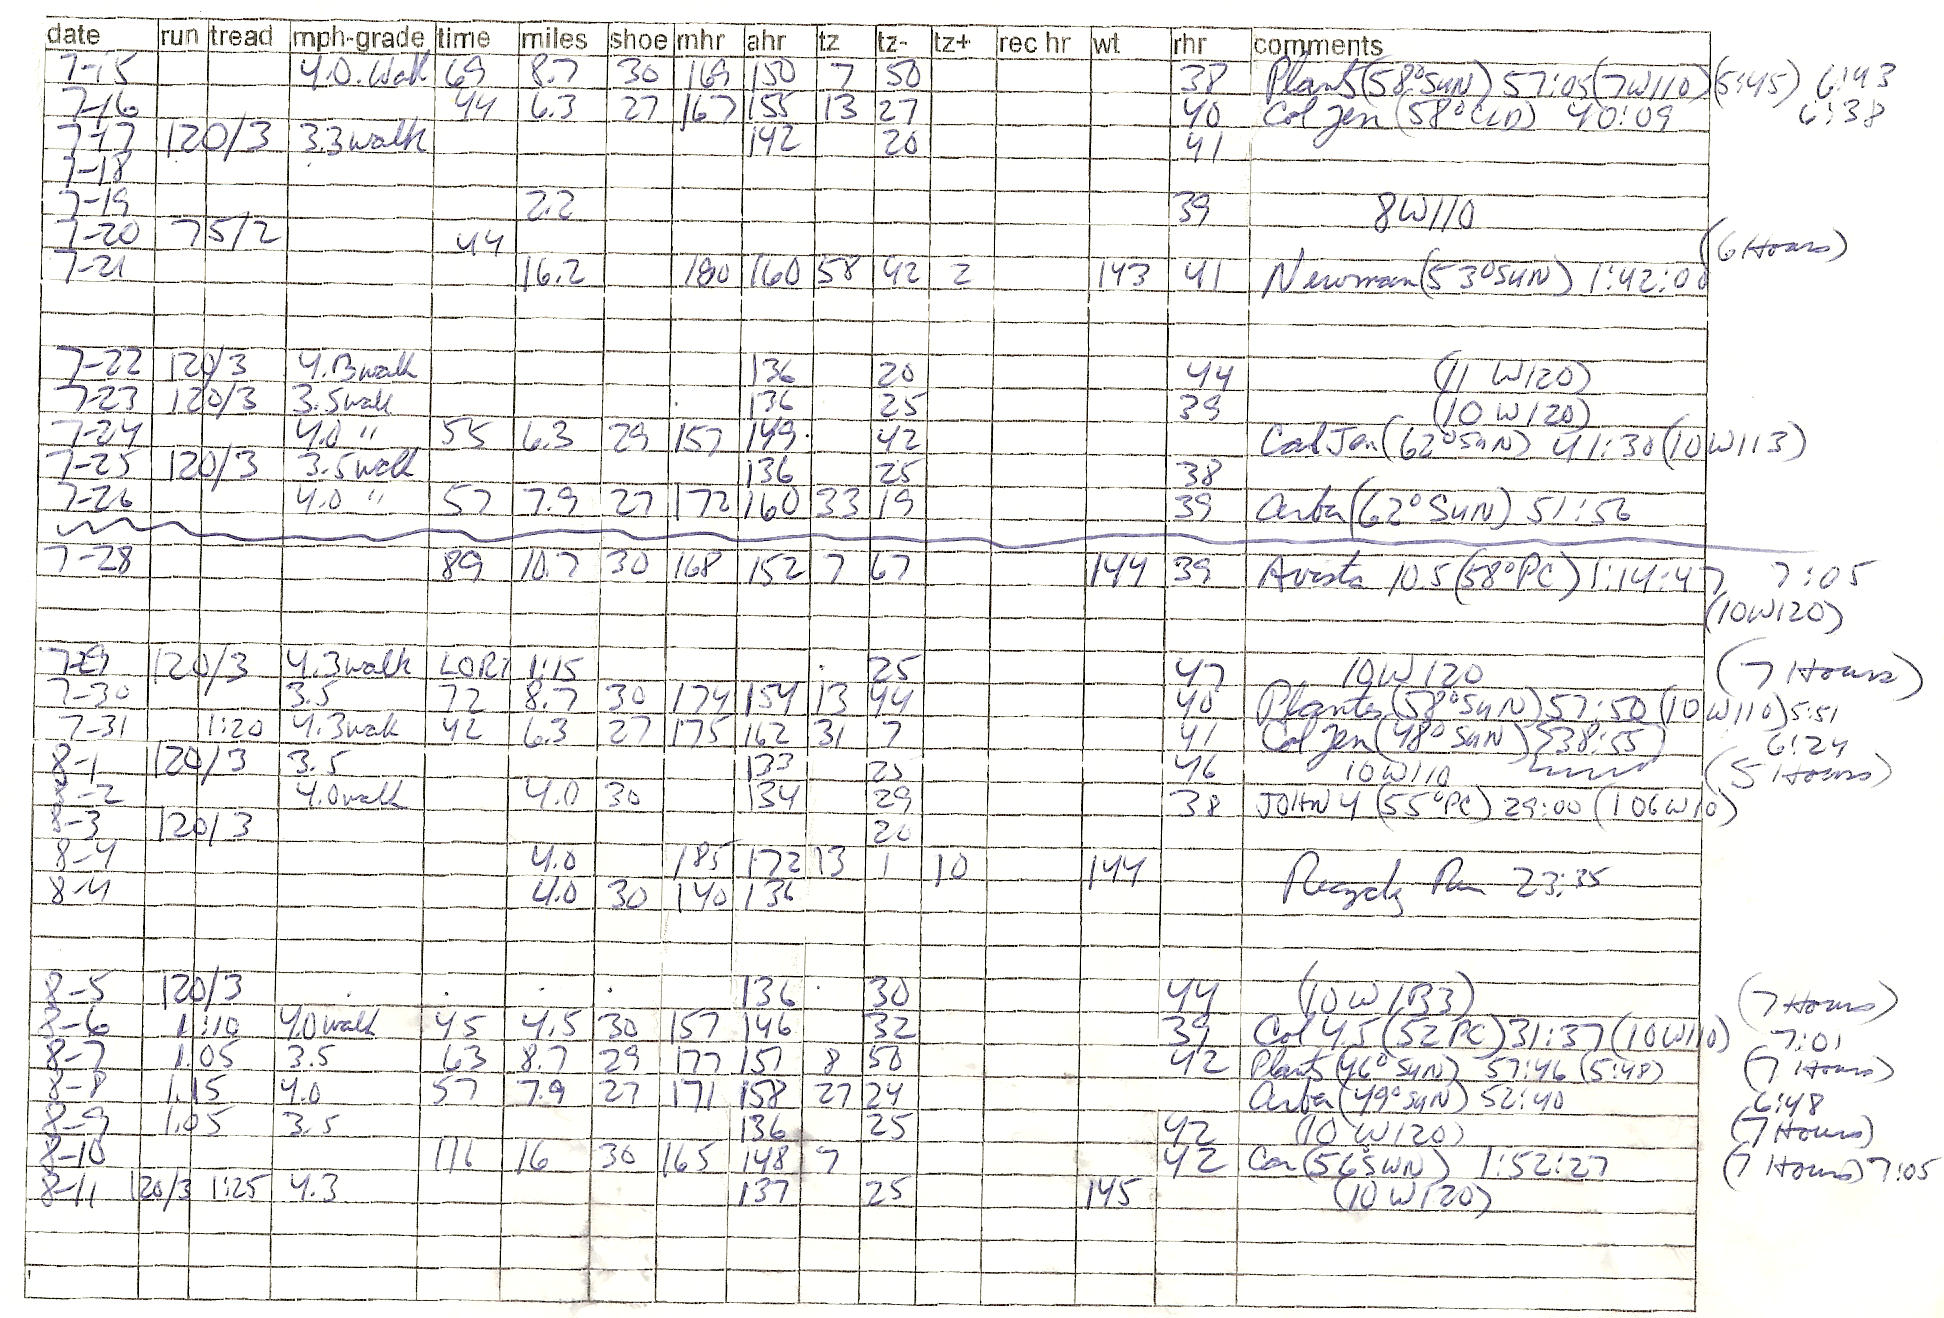 date run tread mph-grade time miles shoe mhr ahr tz tz- tz+ rec hr wt rhr comments
7-15 4.0 Walk 69 8.7 30 169 150 7 50 38 Plants (58° SUN) 57:05 (7W110) (5:45) 6:43
7-16 44 6.3 27 167 155 13 27 40 Col Jen (58° CLD) 40:09 6:38
7-17 120/3 3.3 walk 142 20 41
7-18
7-19 2.2 39 8W110
7-20 75/2 44 (6 Hours)
7-21 16.2 180 160 58 42 2 143 41 Newman (53° SUN) 1:42:00
7-22 120/3 4.3 walk 136 20 44 (11 W120)
7-23 120/3 3.5 walk 136 25 39 (10 W120)
7-24 4.0 " 55 6.3 29 157 149 42 Col Jen (62° SUN) 41:30 (10W113)
7-25 120/3 3.5 walk 136 25 38
7-26 4.0 " 57 7.9 27 172 160 33 19 39 Arbor (62° SUN) 51:56
7-28 89 10.7 30 168 152 7 67 144 39 Avista 10.5 (58° PC) 1:14:47 7:05
(10W120)
7-29 120/3 4.3 walk 1:15 25 47 10W120 (7 Hours)
7-30 3.5 72 8.7 30 174 154 13 44 40 Plants (58° SUN) 57:50 (10W110) 5:51
7-31 1:20 4.3 walk 42 6.3 27 175 162 31 7 41 Col Jen (48° SUN) 38:55 6:24
8-1 120/3 3.5 133 25 46 10W110 (5 Hours)
8-2 4.0 walk 4.0 30 134 29 38 JOHN 4 (55° PC) 29:00 (106W10)
8-3 120/3 20
8-4 4.0 185 172 13 1 10 144 Run 23:35
8-4 4.0 30 140 136
8-5 120/3 136 30 44 (10 W 133) (7 Hours)
8-6 1:10 4.0 walk 45 4.5 30 157 146 32 39 Col 4.5 (52 PC) 31:37 (10W110) 7:01
8-7 1:05 3.5 63 8.7 29 177 151 8 50 42 Plants (46° SUN) 57:46 (5:48) (7 Hours)
8-8 1:15 4.0 57 7.9 27 171 158 27 24 Arbor (49° SUN) 52:40 6:48
8-9 1:05 3.5 136 25 42 (10 W120) (7 Hours)
8-10 116 16 30 165 148 7 42 (56 SUN) 1:52:27 (7 Hours) 7:05
8-11 120/3 1:25 4.3 137 25 145 (10 W120)